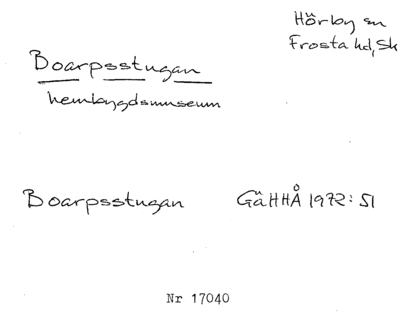 Hörby sn
Frosta hd, Sk
Boarpsstugan
hembygdsmuseum
Boarpsstugan GäHHÅ 1972: 51
Nr 17040